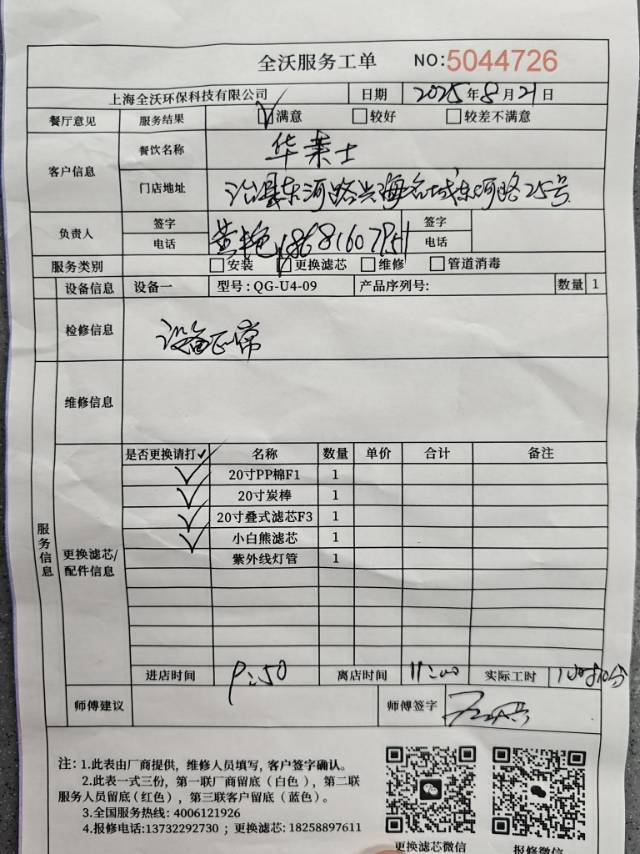 全沃服务工单 NO:5044726
上海全沃环保科技有限公司 日期 2025年8月21日
餐厅意见 服务结果 ☑满意 □较好 □较差不满意
客户信息 餐饮名称 华莱士
门店地址 东河路兴海名城东河路25号
负责人 签字 签字
电话 电话
服务类别 □安装 ☑更换滤芯 □维修 □管道消毒
设备信息 设备一 型号:QG-U4-09 产品序列号: 数量 1
检修信息 设备正常
维修信息
服务信息
更换滤芯/配件信息
是否更换请打✓ 名称 数量 单价 合计 备注
✓ 20寸PP棉F1 1
✓ 20寸炭棒 1
✓ 20寸叠式滤芯F3 1
✓ 小白熊滤芯 1
紫外线灯管 1
进店时间 9:50 离店时间 11:00 实际工时
师傅建议 师傅签字
注: 1.此表由厂商提供，维修人员填写，客户签字确认。
2.此表一式三份，第一联厂商留底（白色），第二联
服务人员留底(红色)，第三联客户留底（蓝色）。
3.全国服务热线: 4006121926
4.报修电话:13732292730 ; 更换滤芯: 18258897611
更换滤芯微信 报修微信